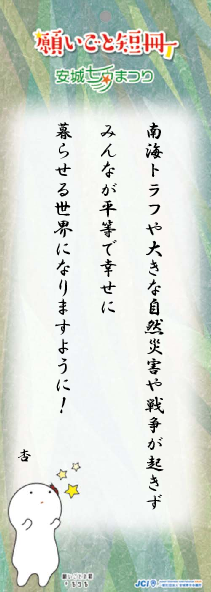 願いごと短冊
安城七夕まつり
南海トラフや大きな自然災害や戦争が起きず
みんなが平等で幸せに
暮らせる世界になりますように！
杏
JCI